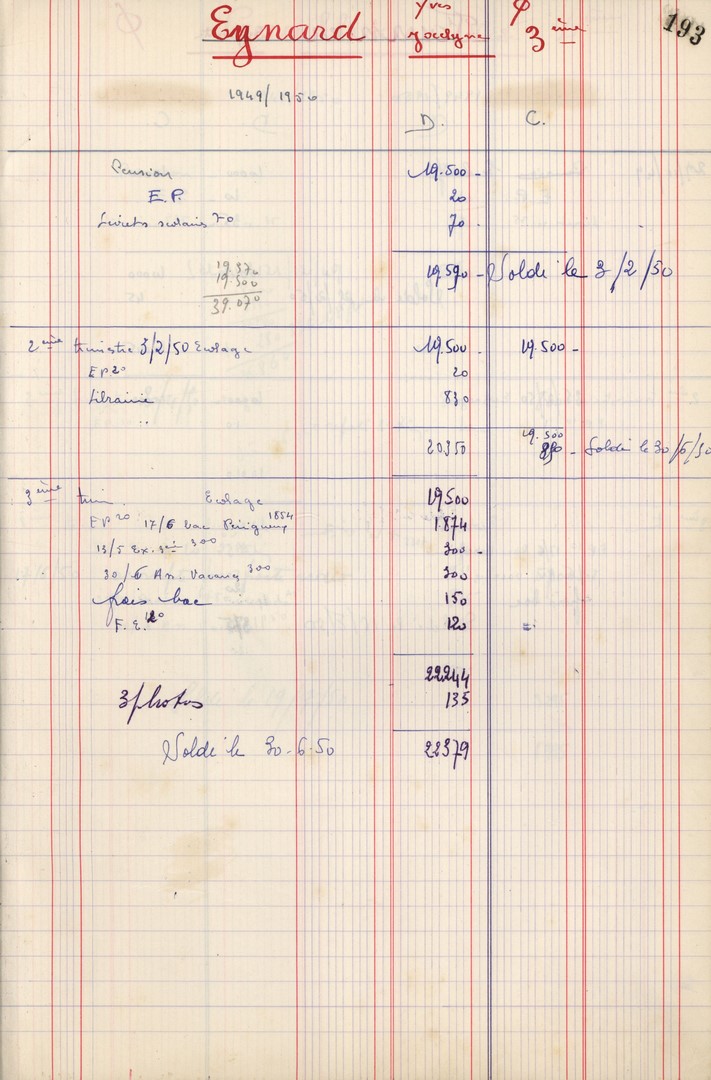 Eynard Yves φ 193
Jocelyne 3ème
1949/1950
D. C.
Pension 19.500 -
E.P. 20
Livrets scolaires 70 70
19.370
19.500
39.070
19.590 - Soldé le 3/2/50
2ème trimestre 3/2/50 Ecolage 19.500 - 19.500 -
EP 20 20
Librairie 830
20350 19.500
850 - Soldé le 30/6/50
3ème trim. Ecolage 19500
EP 20 17/6 bac Périgueux 1854 1.874
13/5 Ex. 300 300 -
30/6 An. Vacances 300 300
frais bac 150
F. E. 120 120
22244
3 photos 135
Soldé le 30-6-50 22379